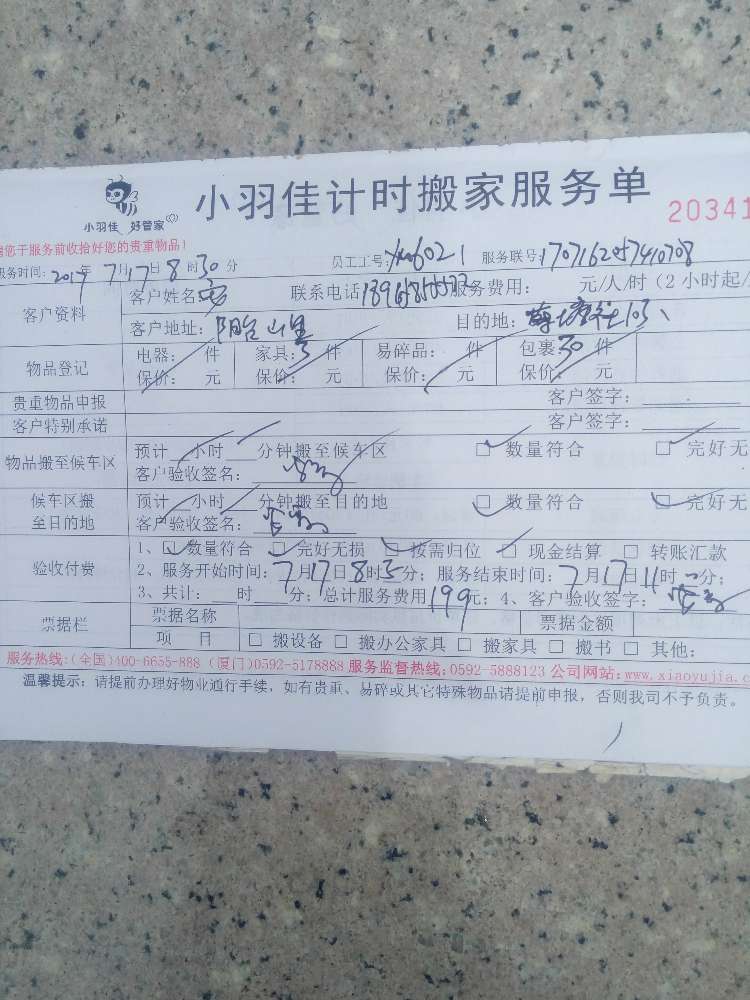 小羽佳 好管家
小羽佳计时搬家服务单
20341
请您于服务前收拾好您的贵重物品!
服务时间: 2017年 7月17日8时30分 员工工号: 6021 服务联号:
客户资料 客户姓名 联系电话 服务费用: 元/人/时(2小时起/
客户地址: 阳台山里 目的地:
物品登记 电器: 件 家具:5件 易碎品: 件 包裹:30件
保价: 元 保价: 元 保价: 元 保价: 元
贵重物品申报 客户签字:
客户特别承诺 客户签字:
物品搬至候车区 预计 小时 分钟搬至候车区 □ 数量符合 □ 完好无
客户验收签名:
候车区搬至目的地 预计 小时 分钟搬至目的地 □ 数量符合 □ 完好无
客户验收签名:
验收付费 1、□ 数量符合 □ 完好无损 □ 按需归位 □ 现金结算 □ 转账汇款
2、服务开始时间:7月17日8时35分; 服务结束时间:7月17日11时 分;
3、共计: 时 分; 总计服务费用199元; 4、客户验收签字:
票据栏 票据名称 票据金额
项 目 □ 搬设备 □ 搬办公家具 □ 搬家具 □ 搬书 □ 其他:
服务热线:(全国)400-6655-888 (厦门)0592-5178888 服务监督热线:0592-5888123 公司网站:www.xiaoyujia.c
温馨提示: 请提前办理好物业通行手续, 如有贵重、易碎或其它特殊物品请提前申报, 否则我司不予负责。